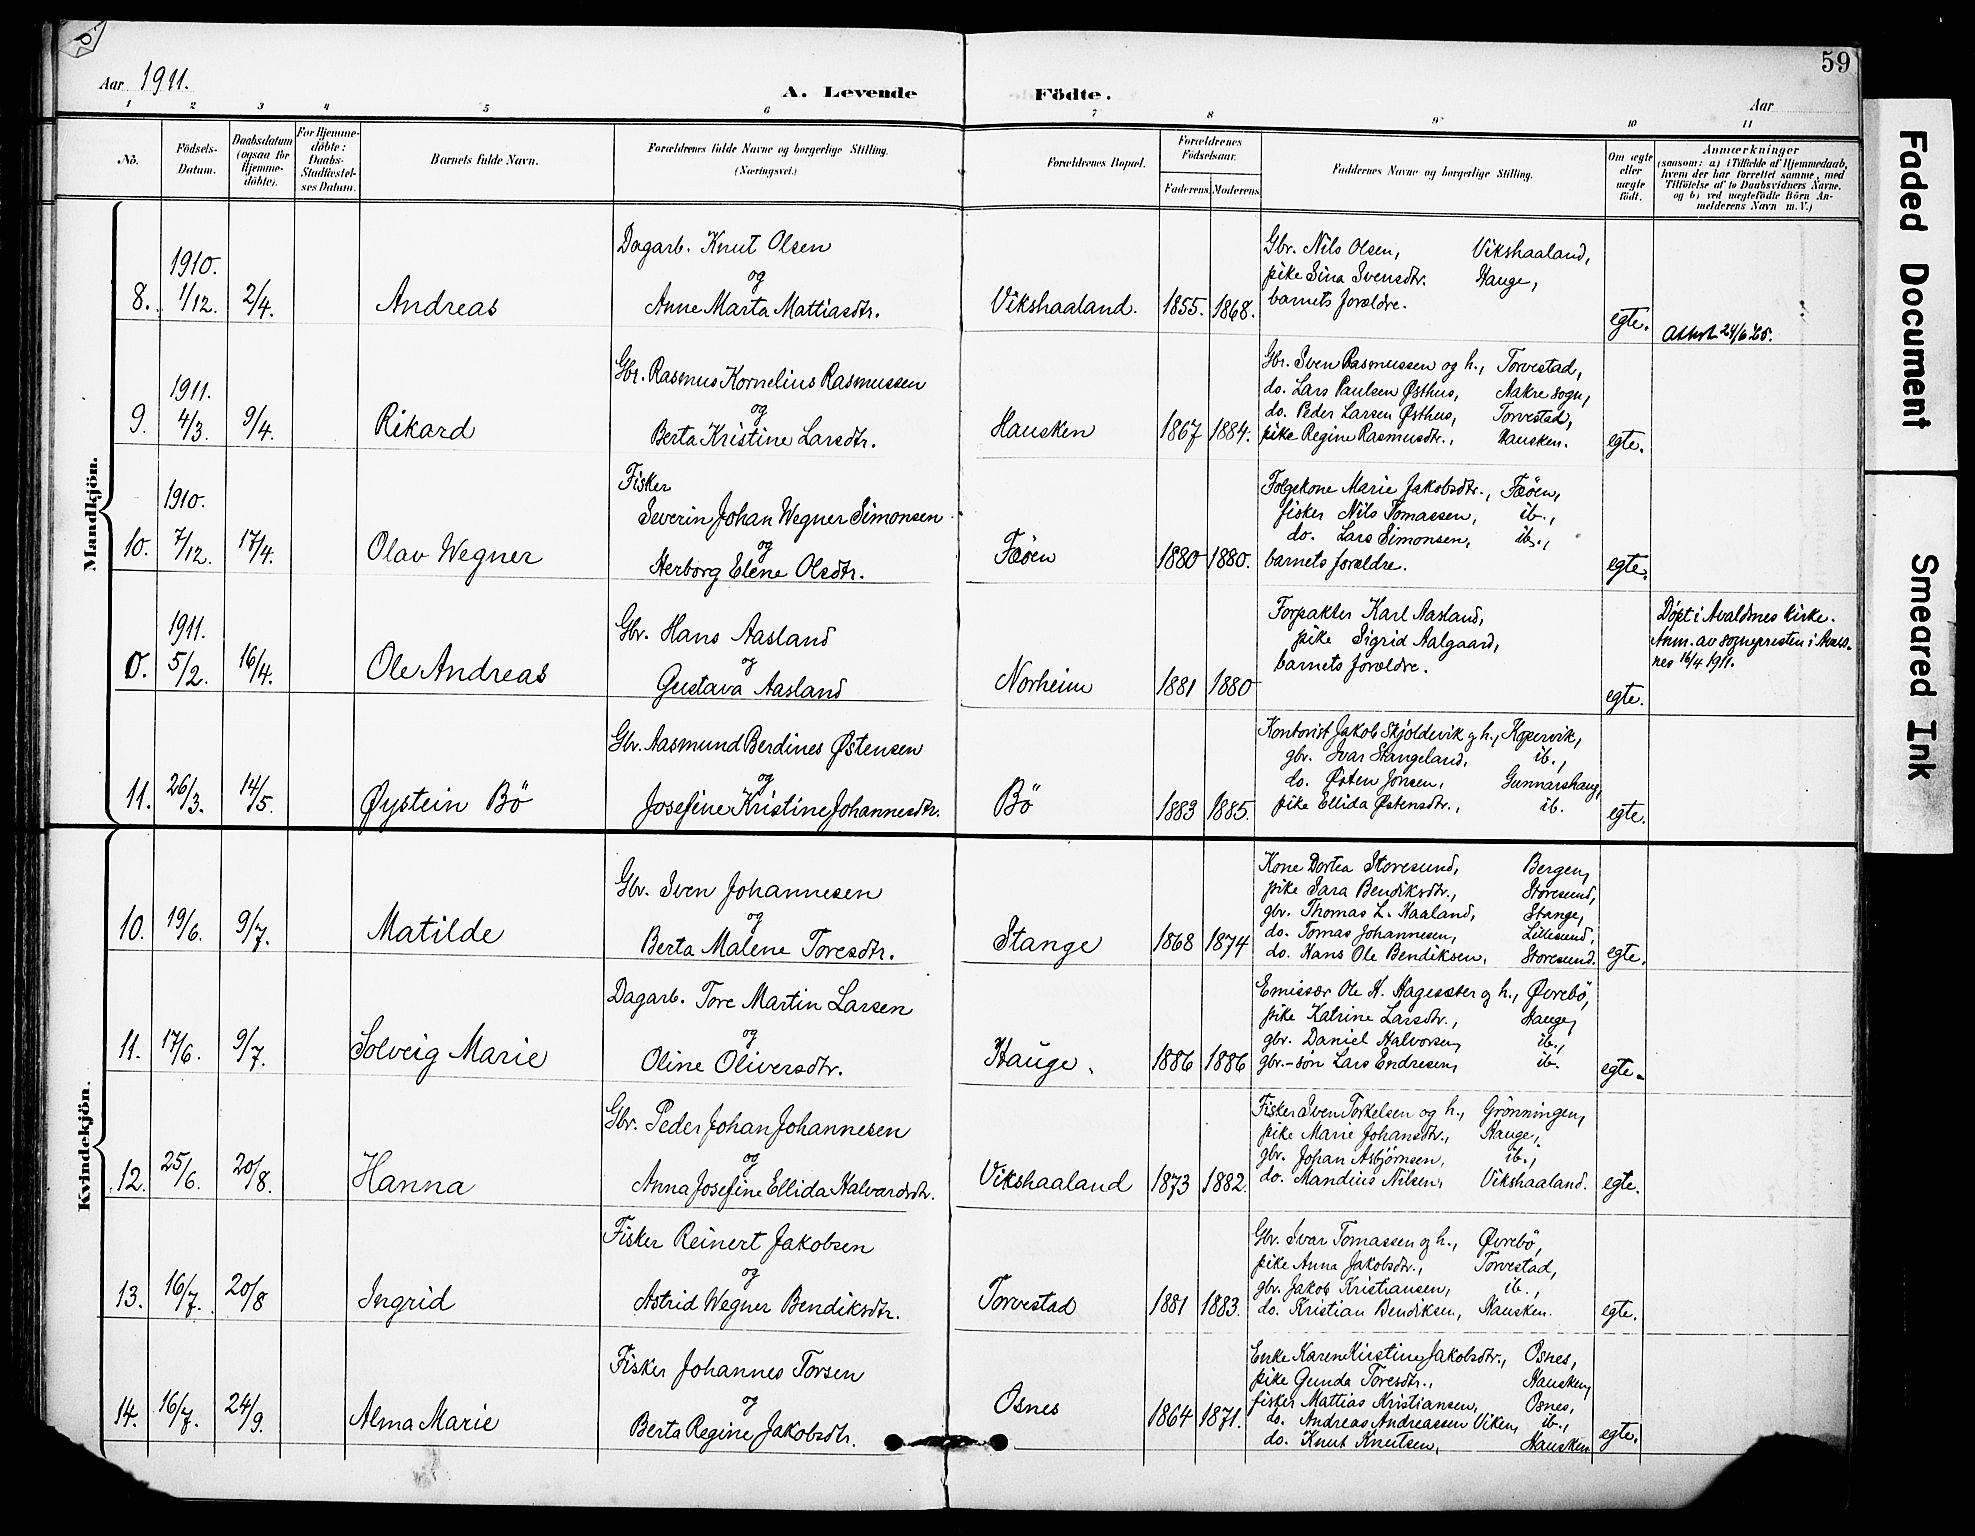 59
Aar 1911.
A. Levende Födte.
Aar
1 2 3 4 5 6 7 8 9 10 11
No.
Födsels-Datum.
Daabsdatum (ogsaa for Hjemme-döbte).
For Hjemme-döbte: Daabs-Stadfæstel-ses Datum.
Barnets fulde Navn.
Forældrenes fulde Navne og borgerlige Stilling. (Næringsvei.)
Forældrenes Bopæl.
Forældrenes Födselsaar.
Faderens. Moderens.
Faddernes Navne og borgerlige Stilling.
Om ægte eller uægte födt.
Anmærkninger
(saasom: a) i Tilfælde af Hjemmedaab,
hvem der har forrettet samme, med
Tilföielse af to Daabsvidners Navne.
og b) ved uægtefödte Börn An-
melderens Navn m. V.)
Mandkjön.
8. 1910. 1/12. 2/4. Andreas
Dagarb. Knut Olsen
og
Anne Marta Mattiasdtr.
Vikshaaland. 1855. 1868.
Gbr. Nils Olsen, Vikshaaland,
pike Sina Svensdtr. Hauge,
barnets forældre.
egte.
Attest 24/6 25.
9. 1911. 4/3. 9/4. Rikard
Gbr. Rasmus Kornelius Rasmussen
og
Berta Kristine Larsdtr.
Hausken 1867 1884.
Gbr. Sven Rasmussen og h., Torvestad,
do. Lars Paulsen Østhus, Aakre sogn,
do. Peder Larsen Østhus, Torvestad,
pike Regine Rasmusdtr., Hausken.
egte.
10. 1910. 7/12. 17/4. Olav Wegner
Fisker
Severin Johan Wegner Simonsen
og
Herborg Elene Olsdtr.
Fæöen 1880 1880.
Følgekone Marie Jakobsdtr., Fæöen,
fisker Nils Tomassen, ib.,
do. Lars Simonsen, ib.,
barnets forældre.
egte.
0. 1911. 5/2. 16/4. Ole Andreas
Gbr. Hans Aasland
og
Gustava Aasland
Norheim 1881 1880
Forpakter Karl Aasland,
pike Sigrid Aalgaard,
barnets forældre.
egte.
Döpt i Avaldnes kirke.
Anm. av sognepresten i Avald-
nes 16/4 1911.
11. 26/3. 14/5. Øystein Bö
Gbr. Aasmund Berdines Østensen
og
Josefine Kristine Johannesdtr.
Bö 1883 1885.
Kontorist Jakob Skjoldevik og h., Kopervik,
gbr. Ivar Stangeland, ib.,
do. Østen Jonsen, Gunnarshaug,
pike Ellida Østensdtr., ib.
egte.
Kvindekjön.
10. 19/6. 9/7. Matilde
Gbr. Sven Johannesen
og
Berta Malene Toresdtr.
Stange 1868 1874
Kone Dortea Storesund, Bergen,
pike Sara Bendiksdtr., Storesund,
gbr. Thomas L. Haaland, Stange,
do. Tomas Johannesen, Lillesund,
do. Hans Ole Bendiksen, Storesund.
egte.
11. 17/6. 9/7. Solveig Marie
Dagarb. Tore Martin Larsen
og
Oline Oliversdtr.
Hauge. 1886 1886
Emissær Ole H. Hagesæter og h., Øvrebö,
pike Katrine Larsdtr., Hauge,
gbr. Daniel Halvorsen, ib.,
gbr.-sön Lars Endresen, ib.
egte.
12. 25/6. 20/8. Hanna
Gbr. Peder Johan Johannesen
og
Anna Josefine Ellida Halvardsdtr.
Vikshaaland 1873 1882.
Fisker Sven Torkelsen og h., Grönningen,
pike Marie Johansdtr., Hauge,
gbr. Johan Asbjørnsen, ib.,
do. Mandius Nilsen, Vikshaaland.
egte.
13. 16/7. 20/8 Ingrid
Fisker Reinert Jakobsen
og
Astrid Wegner Bendiksdtr.
Torvestad 1881 1883.
Gbr. Ivar Tomassen og h., Øvrebö,
pike Anna Jakobsdtr., Torvestad,
gbr. Jakob Kristiansen, ib.,
do. Kristian Bendiksen, Hausken.
egte.
14. 16/7. 24/9. Alma Marie
Fisker Johannes Torsen
og
Berta Regine Jakobsdtr.
Osnes 1864 1871.
Enke Karen Kirstine Jakobsdtr., Osnes,
pike Gunda Toresdtr., Hausken,
fisker Mattias Kristiansen, Osnes,
do. Andreas Andreassen Viken, ib.,
do. Knut Knutsen, Hausken
egte.
Faded Document
Smeared Ink